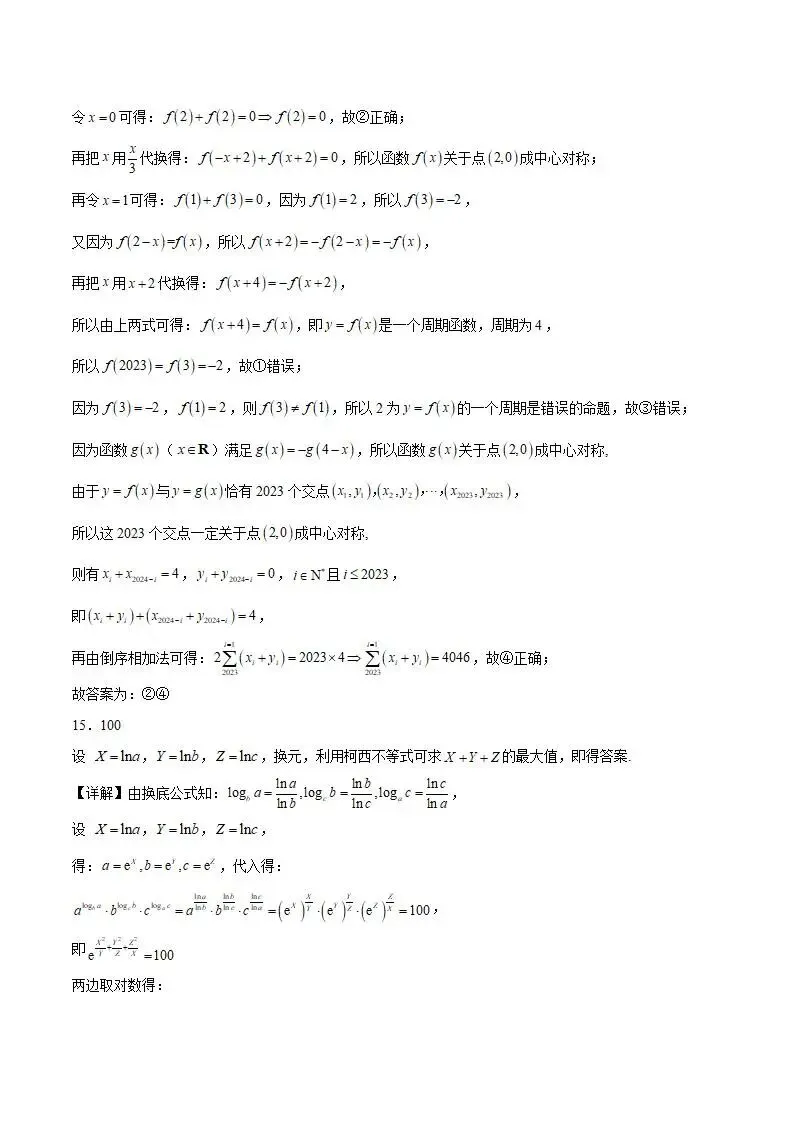 令 x=0 可得：f(2)+f(2)=0⇒f(2)=0，故②正确；
再把 x 用 x/3 代换得：f(-x+2)+f(x+2)=0，所以函数 f(x) 关于点 (2,0) 成中心对称；
再令 x=1 可得：f(1)+f(3)=0，因为 f(1)=2，所以 f(3)=-2，
又因为 f(2-x)=f(x)，所以 f(x+2)=-f(2-x)=-f(x)，
再把 x 用 x+2 代换得：f(x+4)=-f(x+2)，
所以由上两式可得：f(x+4)=f(x)，即 y=f(x) 是一个周期函数，周期为 4，
所以 f(2023)=f(3)=-2，故①错误；
因为 f(3)=-2，f(1)=2，则 f(3)≠f(1)，所以 2 为 y=f(x) 的一个周期是错误的命题，故③错误；
因为函数 g(x)（x∈R）满足 g(x)=-g(4-x)，所以函数 g(x) 关于点 (2,0) 成中心对称,
由于 y=f(x) 与 y=g(x) 恰有 2023 个交点 (x₁,y₁),(x₂,y₂),⋯,(x₂₀₂₃,y₂₀₂₃)，
所以这 2023 个交点一定关于点 (2,0) 成中心对称,
则有 x_i+x_{2024-i}=4，y_i+y_{2024-i}=0，i∈N* 且 i≤2023，
即 (x_i+y_i)+(x_{2024-i}+y_{2024-i})=4，
再由倒序相加法可得：2∑_{2023}^{i=1}(x_i+y_i)=2023×4⇒∑_{2023}^{i=1}(x_i+y_i)=4046，故④正确；
故答案为：②④
15．100
设 X=lna，Y=lnb，Z=lnc，换元，利用柯西不等式可求 X+Y+Z 的最大值，即得答案.
【详解】由换底公式知：log_b a=lna/lnb,log_c b=lnb/lnc,log_a c=lnc/lna，
设 X=lna，Y=lnb，Z=lnc，
得：a=e^X,b=e^Y,c=e^Z，代入得：
a^{log_b a}·b^{log_c b}·c^{log_a c}=a^{lna/lnb}·b^{lnb/lnc}·c^{lnc/lna}=(e^X)^{X/Y}·(e^Y)^{Y/Z}·(e^Z)^{Z/X}=100，
即 e^{X²/Y+Y²/Z+Z²/X}=100
两边取对数得：